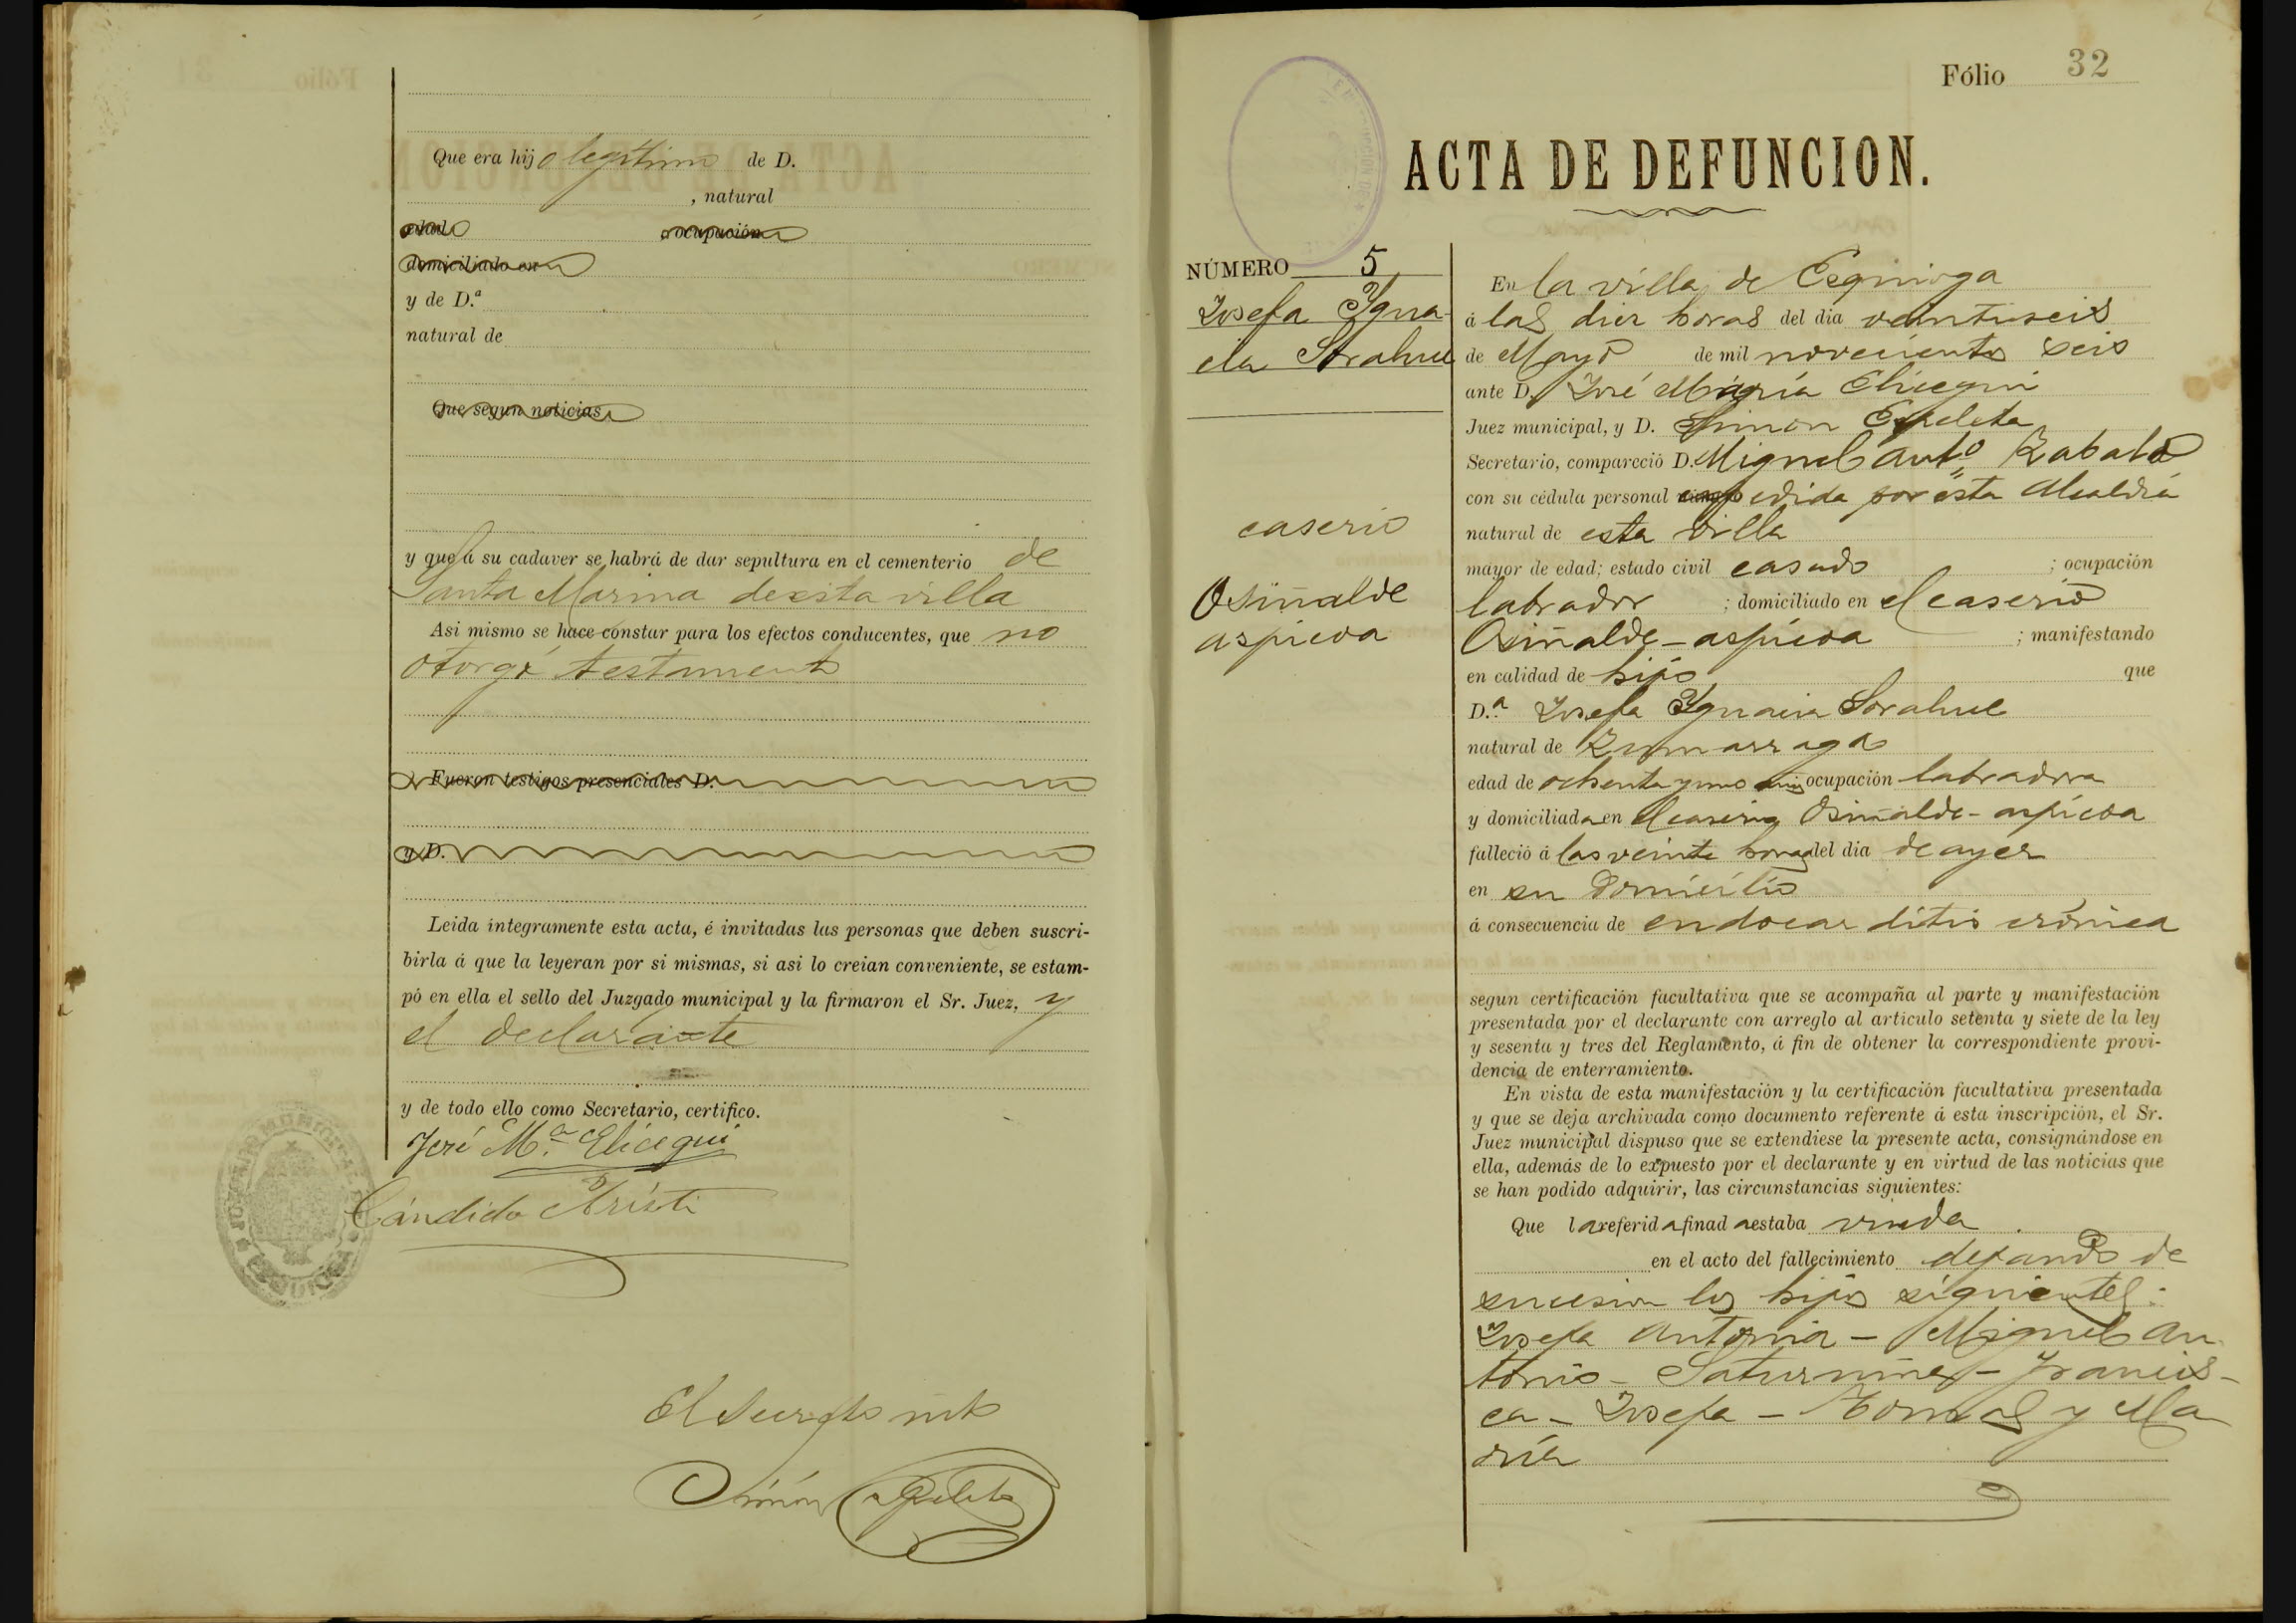 Que era hijo legítimo de D.
, natural
edad ocupación
domiciliado en
y de D.ª
natural de
Que segun noticias,
y que á su cadaver se habrá de dar sepultura en el cementerio de
Santa Marina de esta villa
Asi mismo se hace constar para los efectos conducentes, que no
otorgó testamento
Fueron testigos presenciales D.
y D.
Leida íntegramente esta acta, é invitadas las personas que deben suscri-
birla á que la leyeran por si mismas, si asi lo creian conveniente, se estam-
pó en ella el sello del Juzgado municipal y la firmaron el Sr. Juez, y
el declarante
y de todo ello como Secretario, certifico.
José M.ª Elicegui
Cándido Aristi
El Secret
Simón Ezpeleta
Fólio 32
ACTA DE DEFUNCION.
NÚMERO 5
Josefa Ygna-
cia Sorahue
caserio
Osiñalde
aspicoa
En la villa de Ezquioga
á las diez horas del dia veintiseis
de Mayo de mil novecientos seis
ante D. José María Elicegui
Juez municipal, y D. Simon Ezpeleta
Secretario, compareció D. Miguel Antº Zabalo
con su cédula personal espedida por esta Alcaldia
natural de esta villa
mayor de edad; estado civil casado ; ocupación
labrador ; domiciliado en el caserio
Osiñalde-aspicoa ; manifestando
en calidad de hijo que
D.ª Josefa Ygnacia Sorahue
natural de Zumarraga
edad de ochenta y uno ocupación labradora
y domiciliada en el caserio Osiñalde-aspicoa
falleció á las veinte horas del dia de ayer
en su domicilio
á consecuencia de endocarditis crónica
segun certificación facultativa que se acompaña al parte y manifestación
presentada por el declarante con arreglo al articulo setenta y siete de la ley
y sesenta y tres del Reglamento, á fin de obtener la correspondiente provi-
dencia de enterramiento.
En vista de esta manifestación y la certificación facultativa presentada
y que se deja archivada como documento referente á esta inscripción, el Sr.
Juez municipal dispuso que se extendiese la presente acta, consignándose en
ella, además de lo expuesto por el declarante y en virtud de las noticias que
se han podido adquirir, las circunstancias siguientes:
Que la referida finada estaba viuda
en el acto del fallecimiento dejando de
sucesion los hijos siguientes:
Josefa Antonia - Miguel An
tonio - Saturnina - Francis-
ca - Josefa - Tomas y Ma
ría